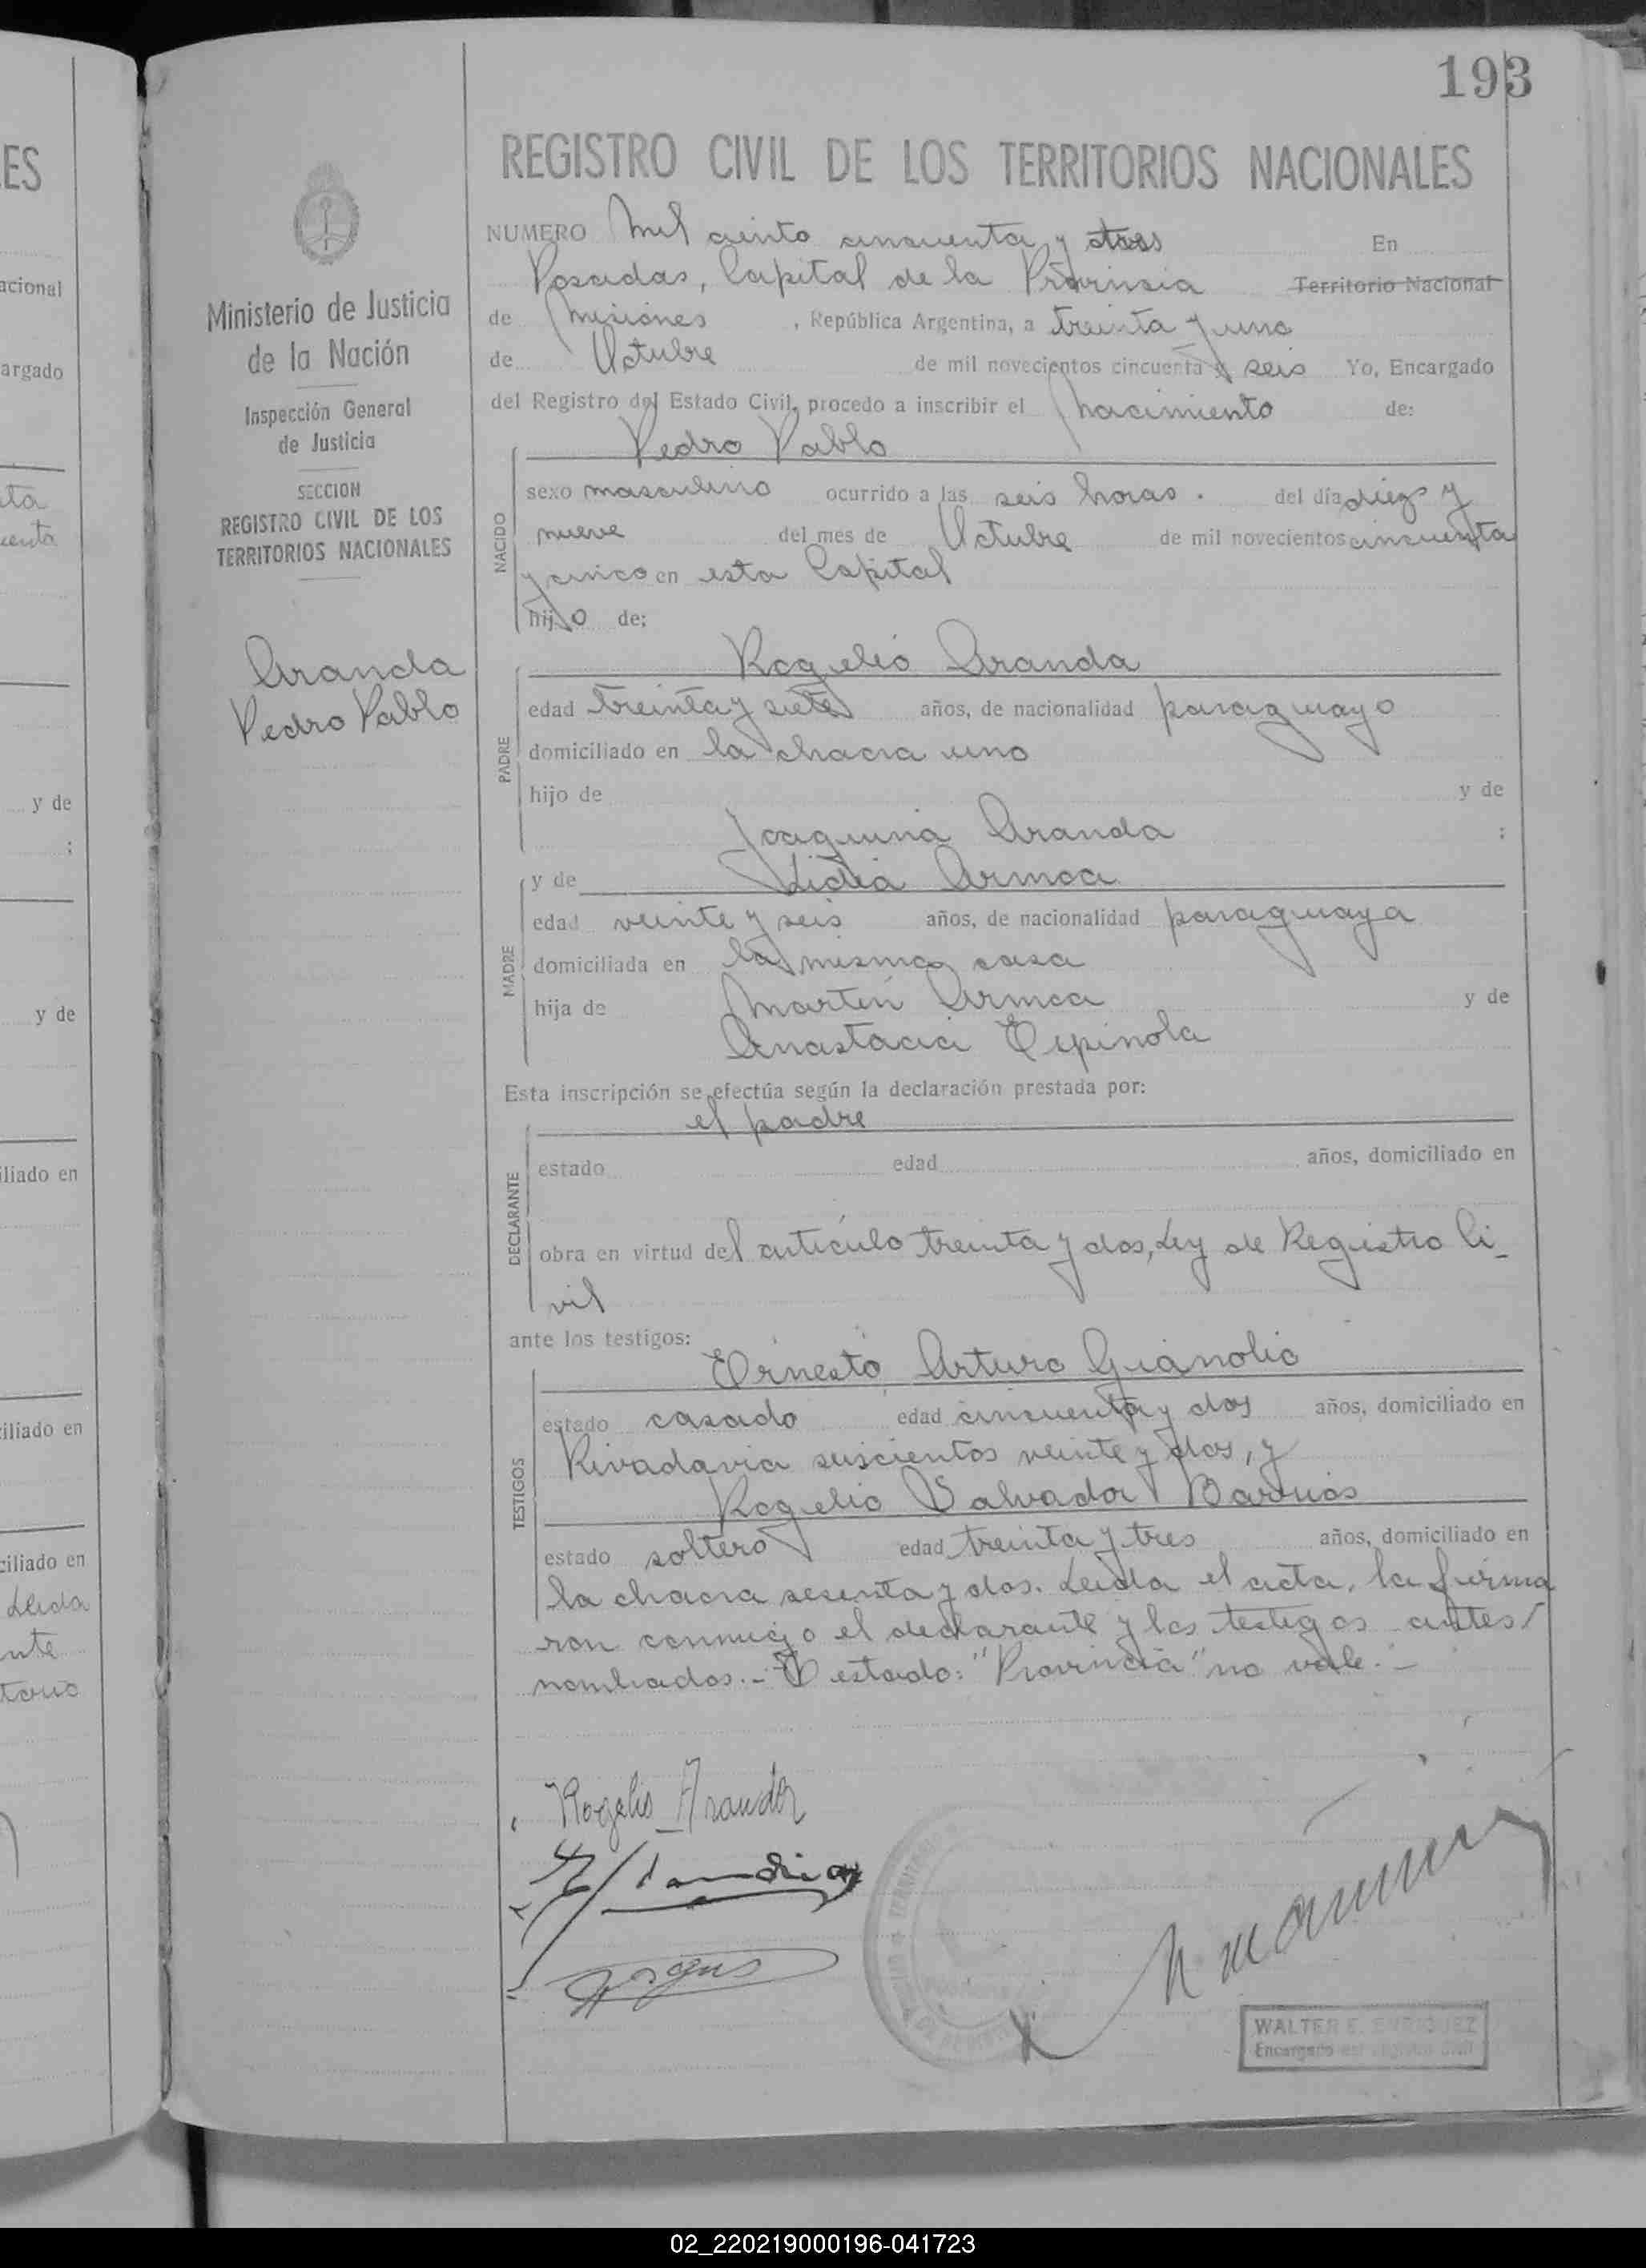 193
REGISTRO CIVIL DE LOS TERRITORIOS NACIONALES
NUMERO Mil ciento cincuenta y En
Posadas, Capital de la Provincia Territorio Nacional
de Misiones , República Argentina, a treinta y uno
de Octubre de mil novecientos cincuenta y seis Yo, Encargado
del Registro del Estado Civil, procedo a inscribir el nacimiento de:
Pedro Pablo
NACIDO
sexo masculino ocurrido a las seis horas. del día diez y
nueve del mes de Octubre de mil novecientos cincuenta
y cinco en esta Capital
hijo de:
Rogelio Aranda
PADRE
edad treinta y siete años, de nacionalidad paraguayo
domiciliado en la chacra uno
hijo de y de
Joaquina Aranda ;
y de Lidia Armoa
MADRE
edad veinte y seis años, de nacionalidad paraguaya
domiciliada en la misma casa
hija de Martín Armoa y de
Anastacia Espinola
Esta inscripción se efectúa según la declaración prestada por:
el padre
DECLARANTE
estado edad años, domiciliado en
obra en virtud del artículo treinta y dos, Ley de Registro Ci-
vil
ante los testigos:
Ernesto Arturo Gianolio
TESTIGOS
estado casado edad cincuenta y dos años, domiciliado en
Rivadavia seiscientos veinte y dos, y
Rogelio Salvador Barrios
estado soltero edad treinta y tres años, domiciliado en
la chacra sesenta y dos. Leida el acta, la firma
ron conmigo el declarante y los testigos antes
nombrados.- estado: "Provincia" no vale.-
Rogelio Aranda
WALTER E. ENRIQUEZ
Encargado del Registro Civil
Ministerio de Justicia
de la Nación
Inspección General
de Justicia
SECCION
REGISTRO CIVIL DE LOS
TERRITORIOS NACIONALES
Aranda
Pedro Pablo
ES
acional
argado
y de
:
y de
iliado en
iliado en
ciliado en
Leida
nte
02_220219000196-041723